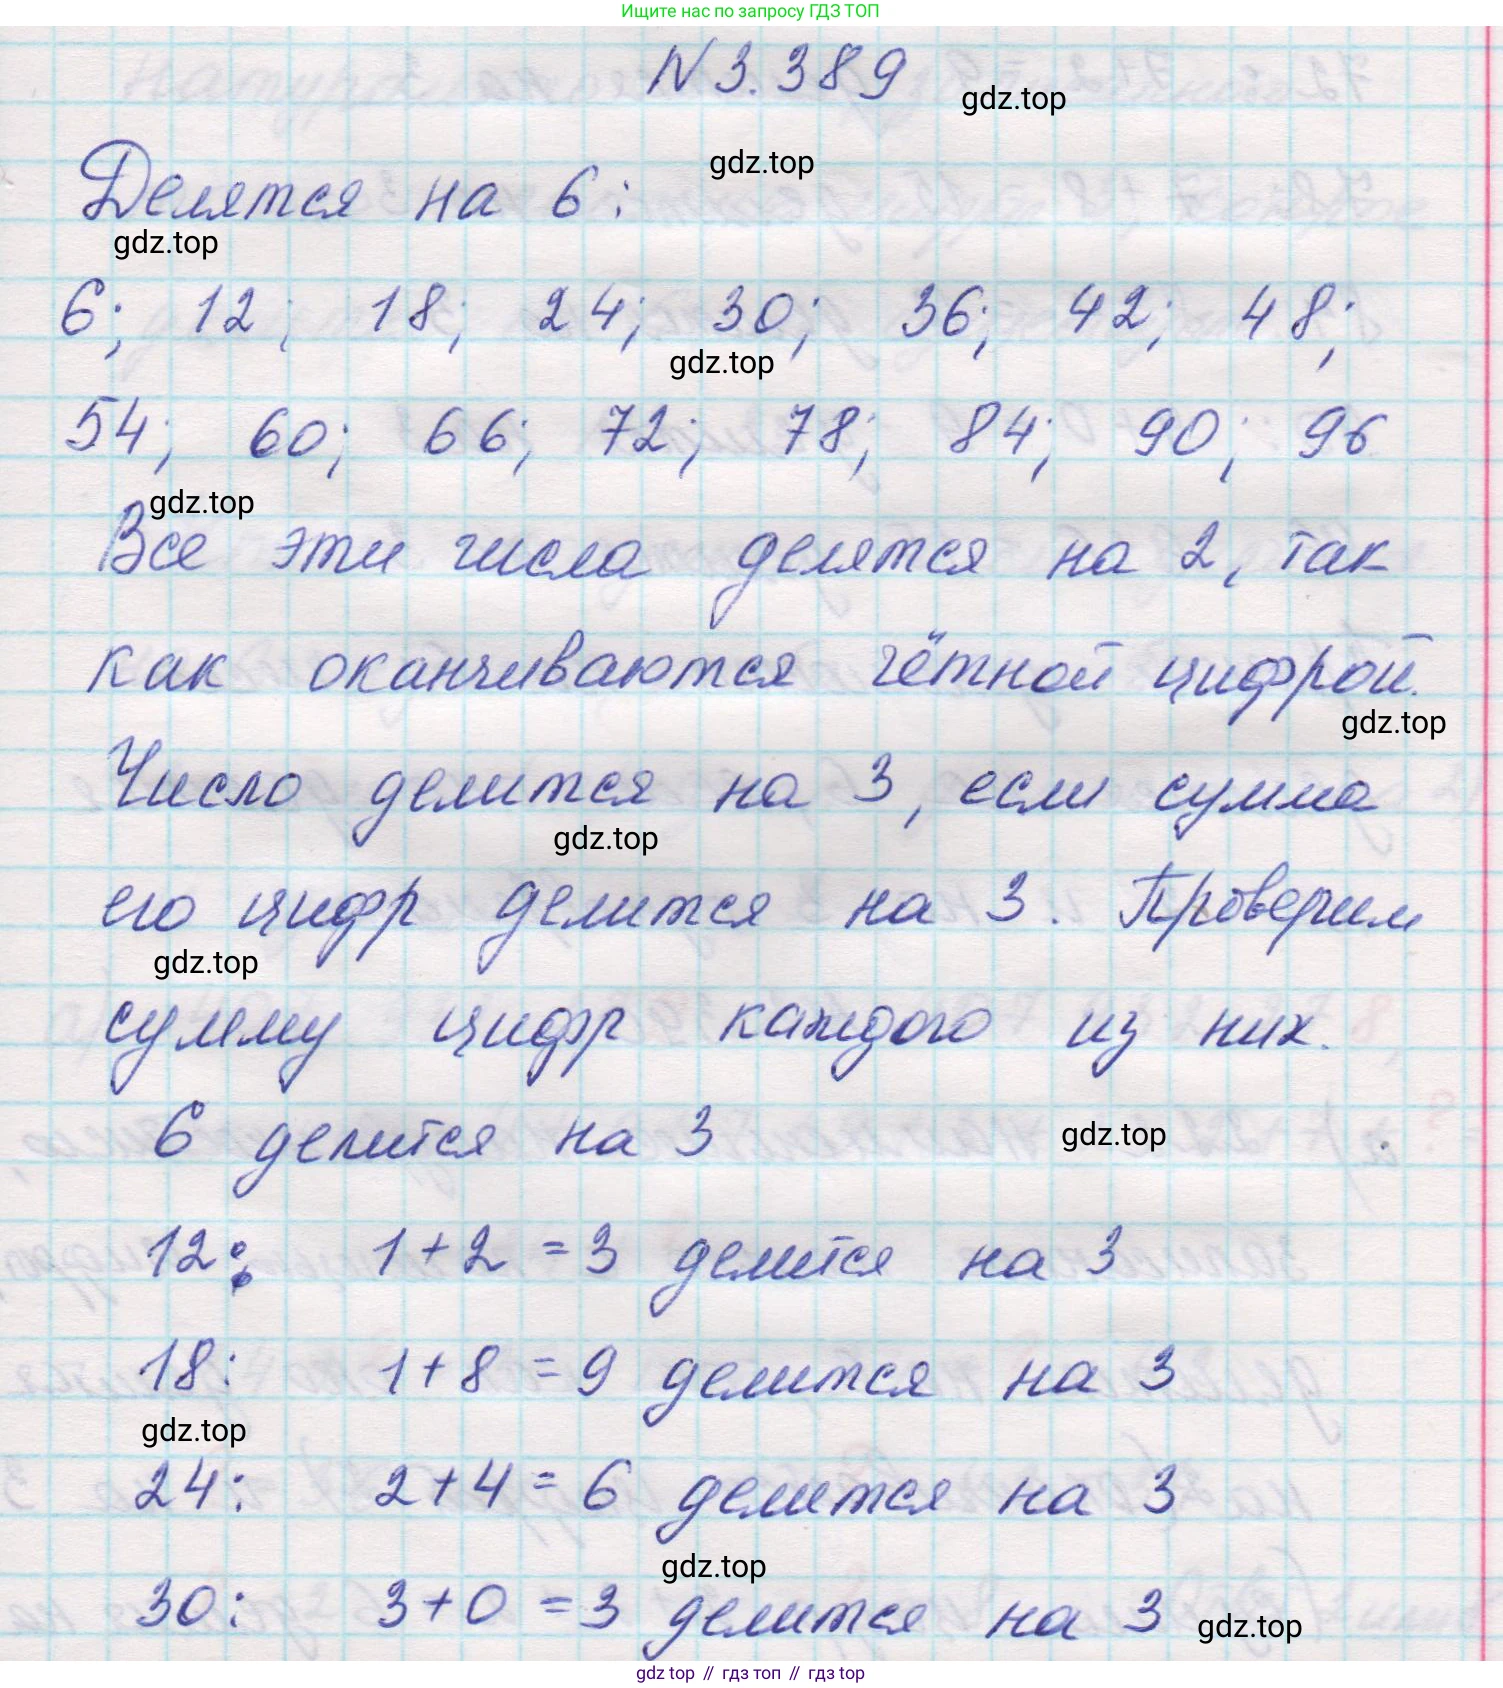 Ищите нас по запросу ГДЗ ТОП
N 3.389
gdz.top
gdz.top
Делятся на 6:
gdz.top
6; 12; 18; 24; 30; 36; 42; 48;
gdz.top
54; 60; 66; 72; 78; 84; 90; 96
gdz.top
Все эти числа делятся на 2, так
как оканчиваются чётной цифрой.
gdz.top
Число делится на 3, если сумма
gdz.top
его цифр делится на 3. Проверим
gdz.top
сумму цифр каждого из них.
6 делится на 3
gdz.top
12: 1+2=3 делится на 3
18: 1+8=9 делится на 3
gdz.top
24: 2+4=6 делится на 3
gdz.top
30: 3+0=3 делится на 3
gdz.top
gdz top // гдз топ // гдз top